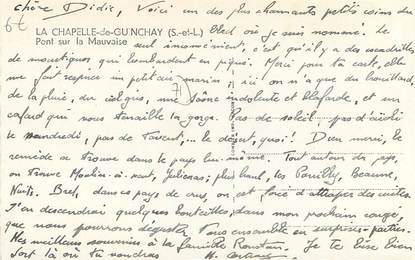 Chère Didie, Voici un des plus charmants petits coins du
6€
LA CHAPELLE-de-GUINCHAY (S.-et-L.)
Pont sur la Mauvaise
bled où je suis nommé. Le
seul inconvénient, c'est qu'il y a des escadrilles
de moustiques qui bombardent en piqué. Merci pour ta carte, elle
me fait respirer un petit air marin ; ici on n'a que du brouillard,
71
de la pluie, du ciel gris, une Saône indolente et blafarde, et un
cafard qui vous tenaille la gorge. Pas de soleil... pas d'
le vendredi, pas de ... le désert, quoi ! D'un merci, le
remède se trouve dans le pays lui-même. Tout autour du pays,
on trouve Moulin-à-vent, Julienas ; plus haut, les Pouilly, Beaune,
Nuits. Bref, dans ce pays de crus, on est forcé d'attraper des cuites.
J'en descendrai quelques bouteilles dans mon prochain congé,
que nous pourrons déguster tous ensemble en surprises-parties.
Mes meilleurs souvenirs à la famille Je te bise bien
fort là où tu voudras